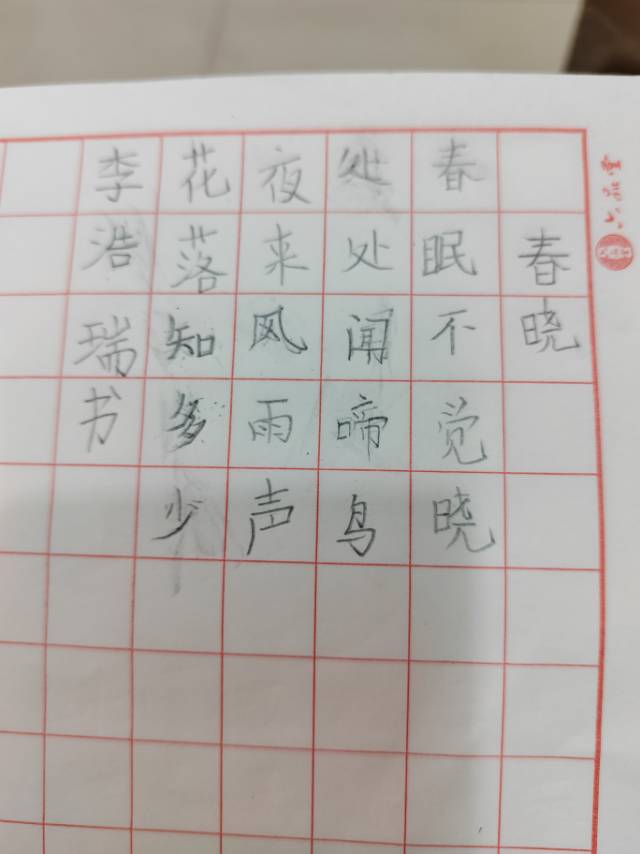 春晓
春眠不觉晓
处处闻啼鸟
夜来风雨声
花落知多少
李浩瑞书
六品堂